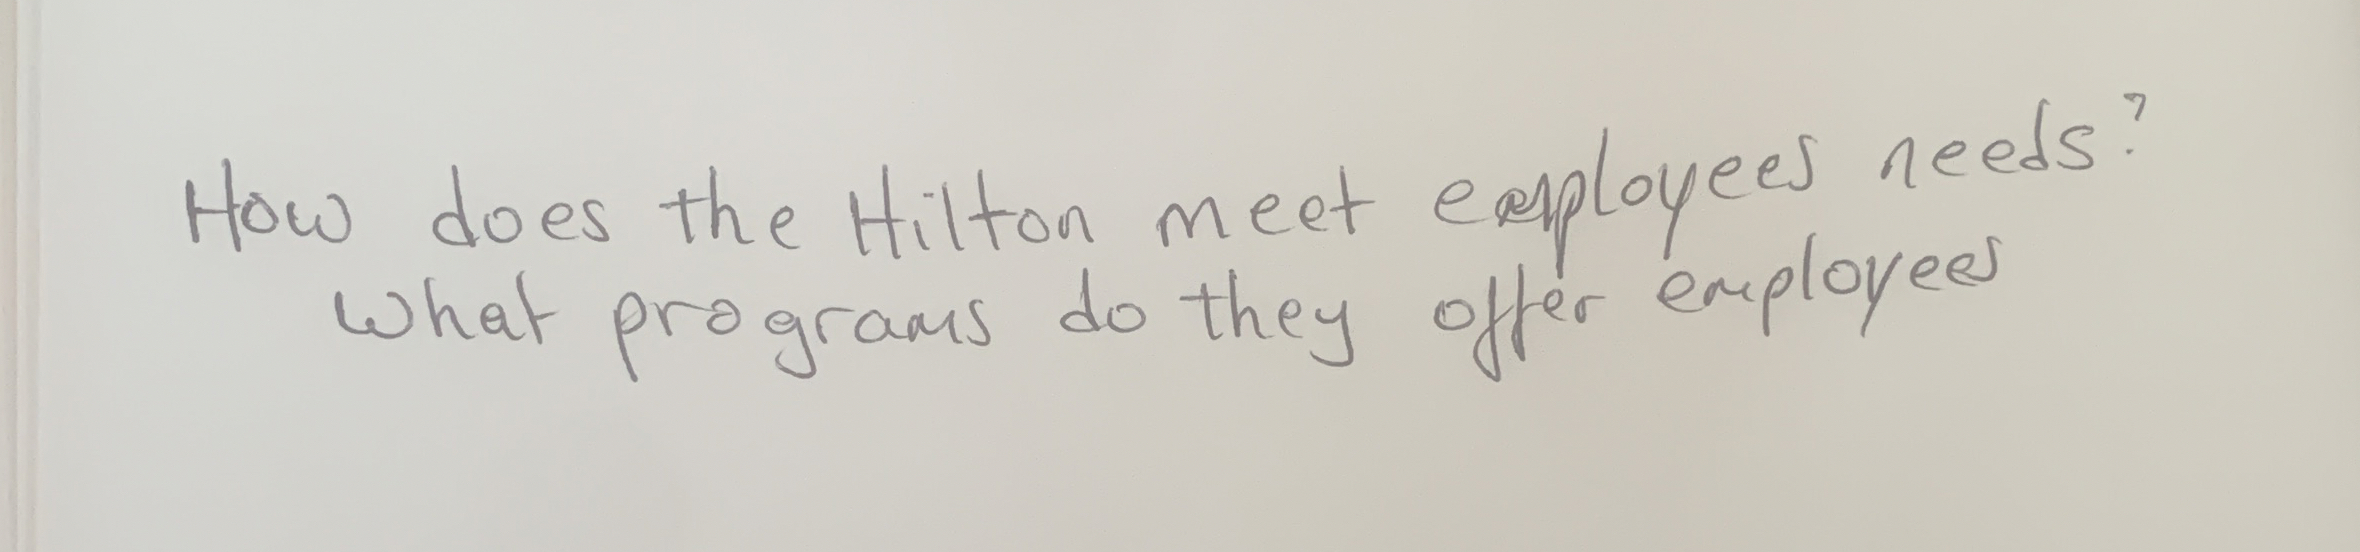 How does the Hilton meet employees needs?
What programs do they offer employees